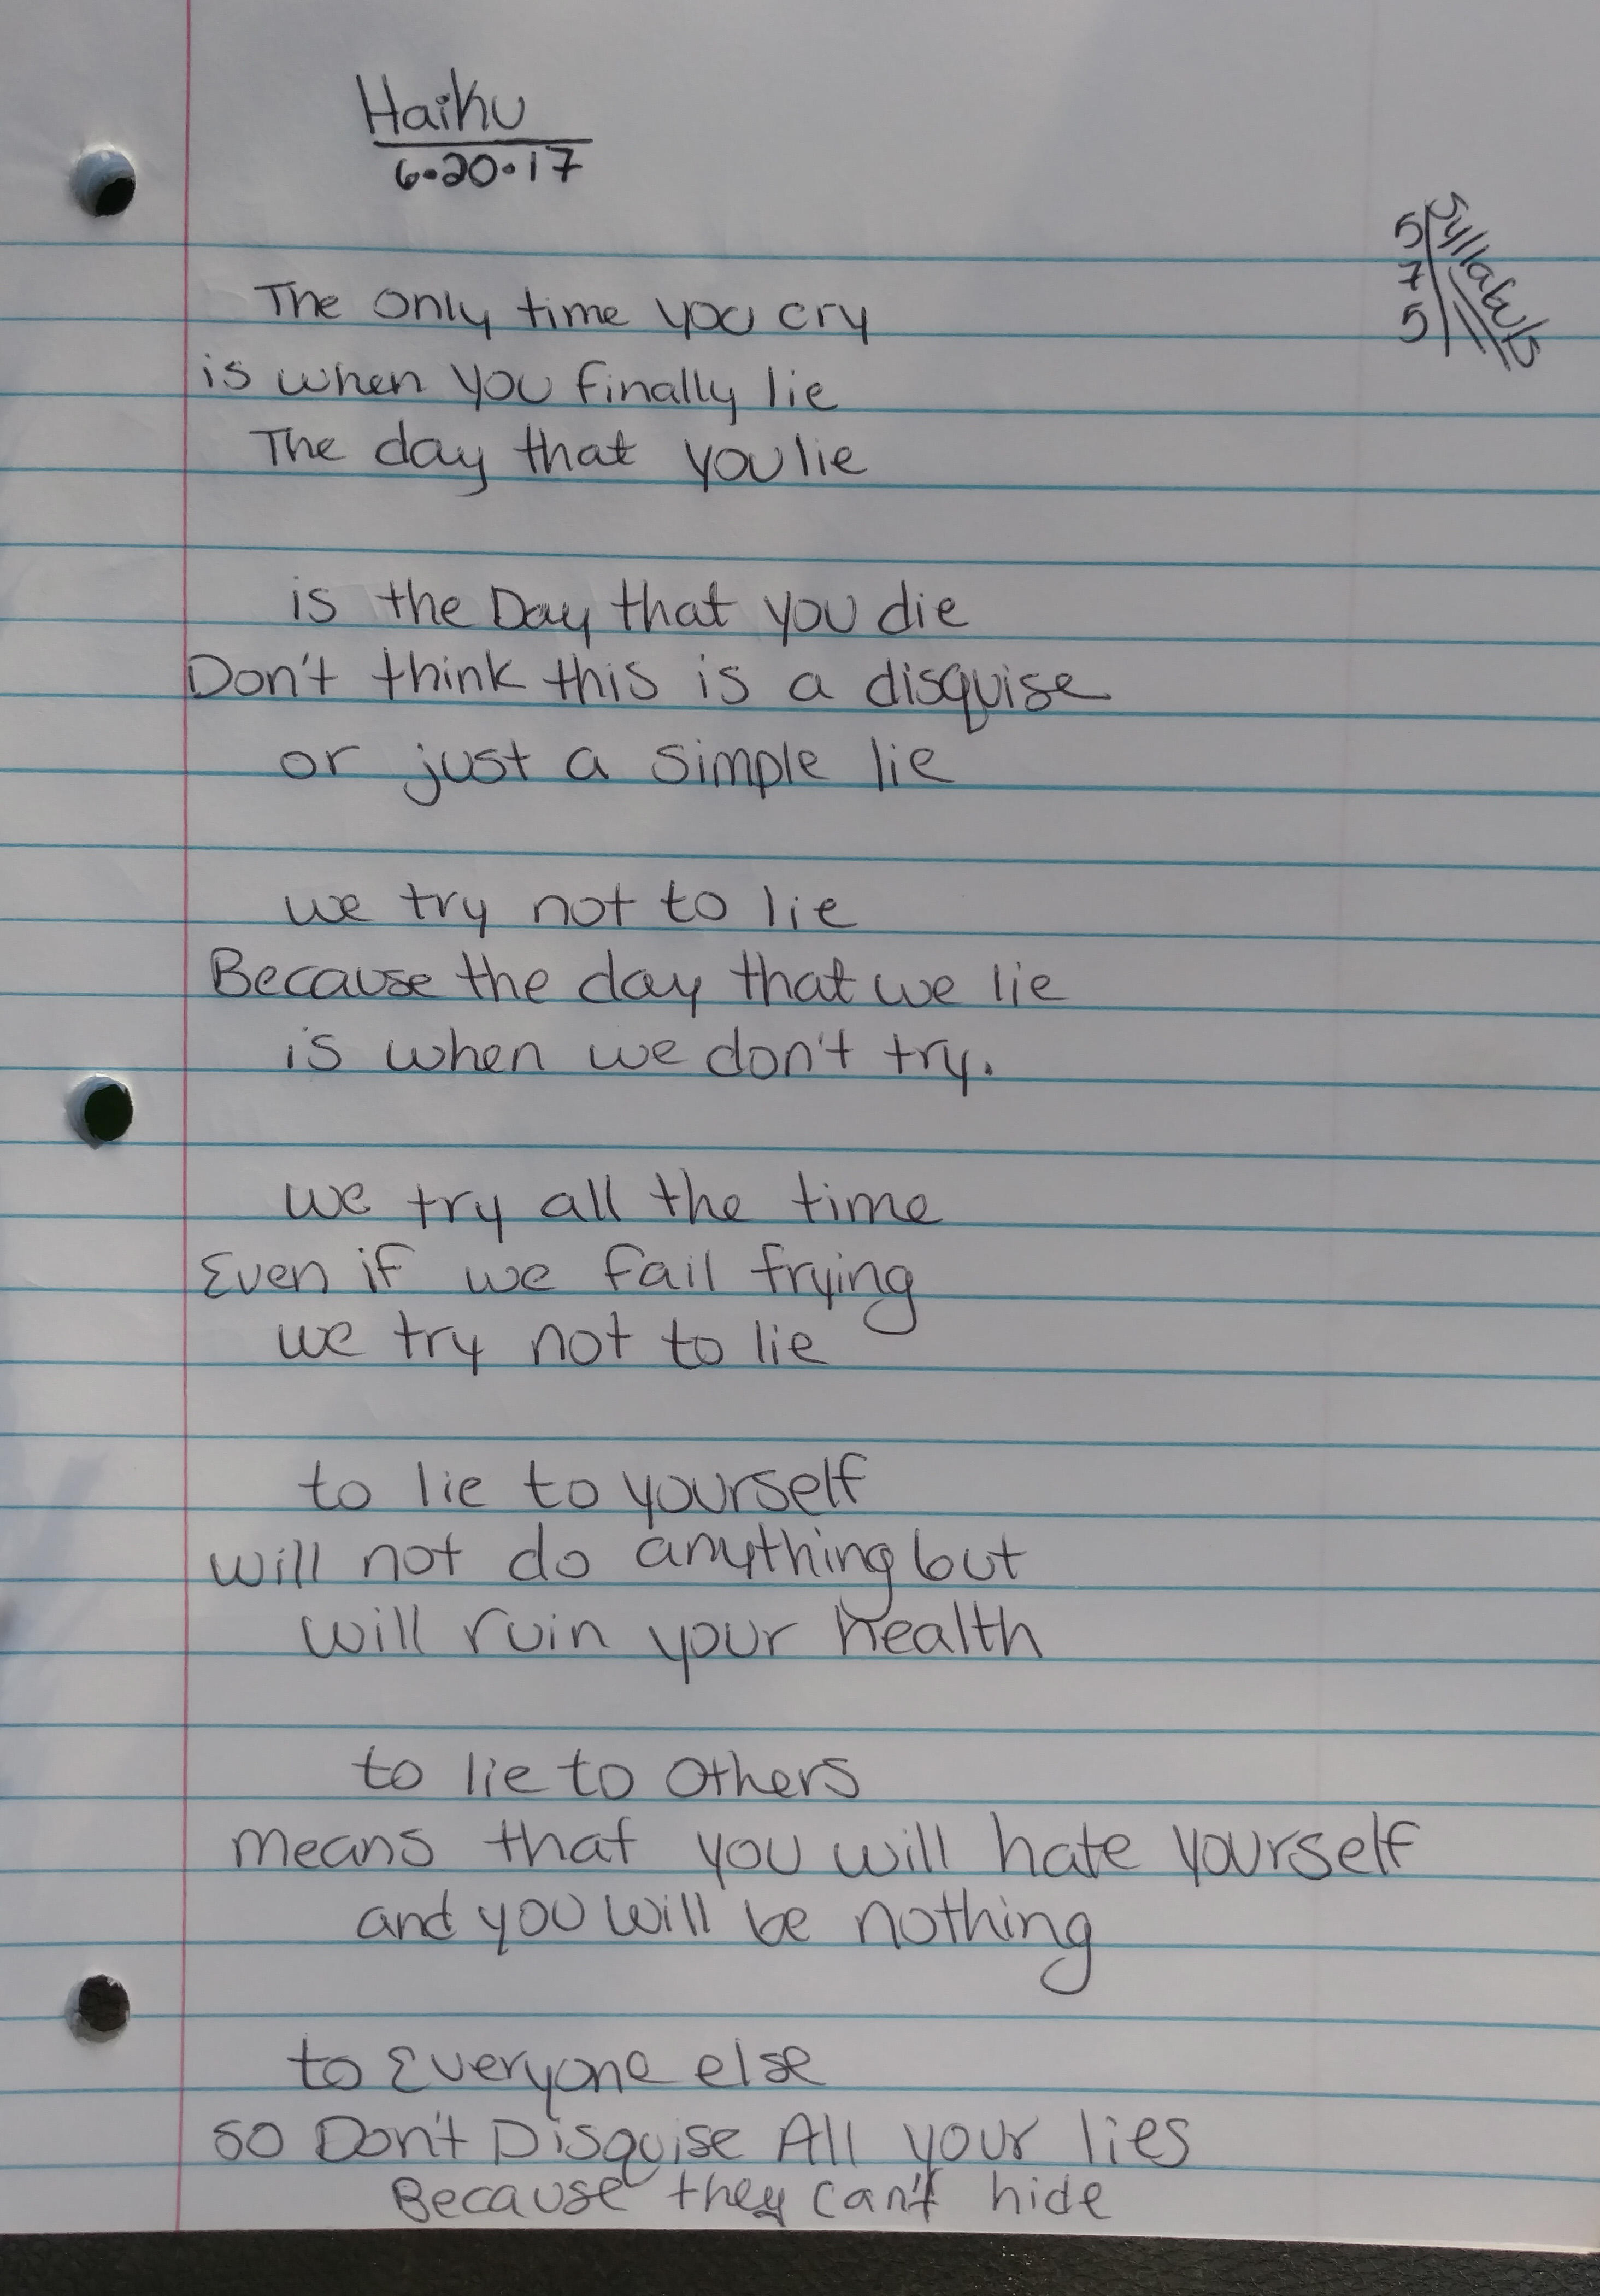 Haiku
6.20.17
Syllabuls
5
7
5
The only time you cry
is when you finally lie
The day that you lie
is the Day that you die
Don't think this is a disquise
or just a simple lie
we try not to lie
Because the day that we lie
is when we don't try.
we try all the time
Even if we fail trying
we try not to lie
to lie to yourself
will not do anything but
will ruin your health
to lie to others
means that you will hate yourself
and you will be nothing
to Everyone else
so Don't Disquise All your lies
Because they can't hide